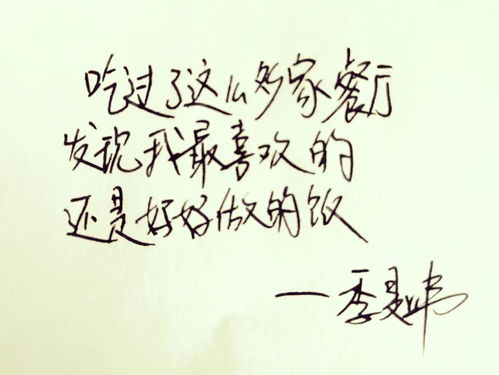 吃过了这么多家餐厅
发现我最喜欢的
还是好好做的饭
一季